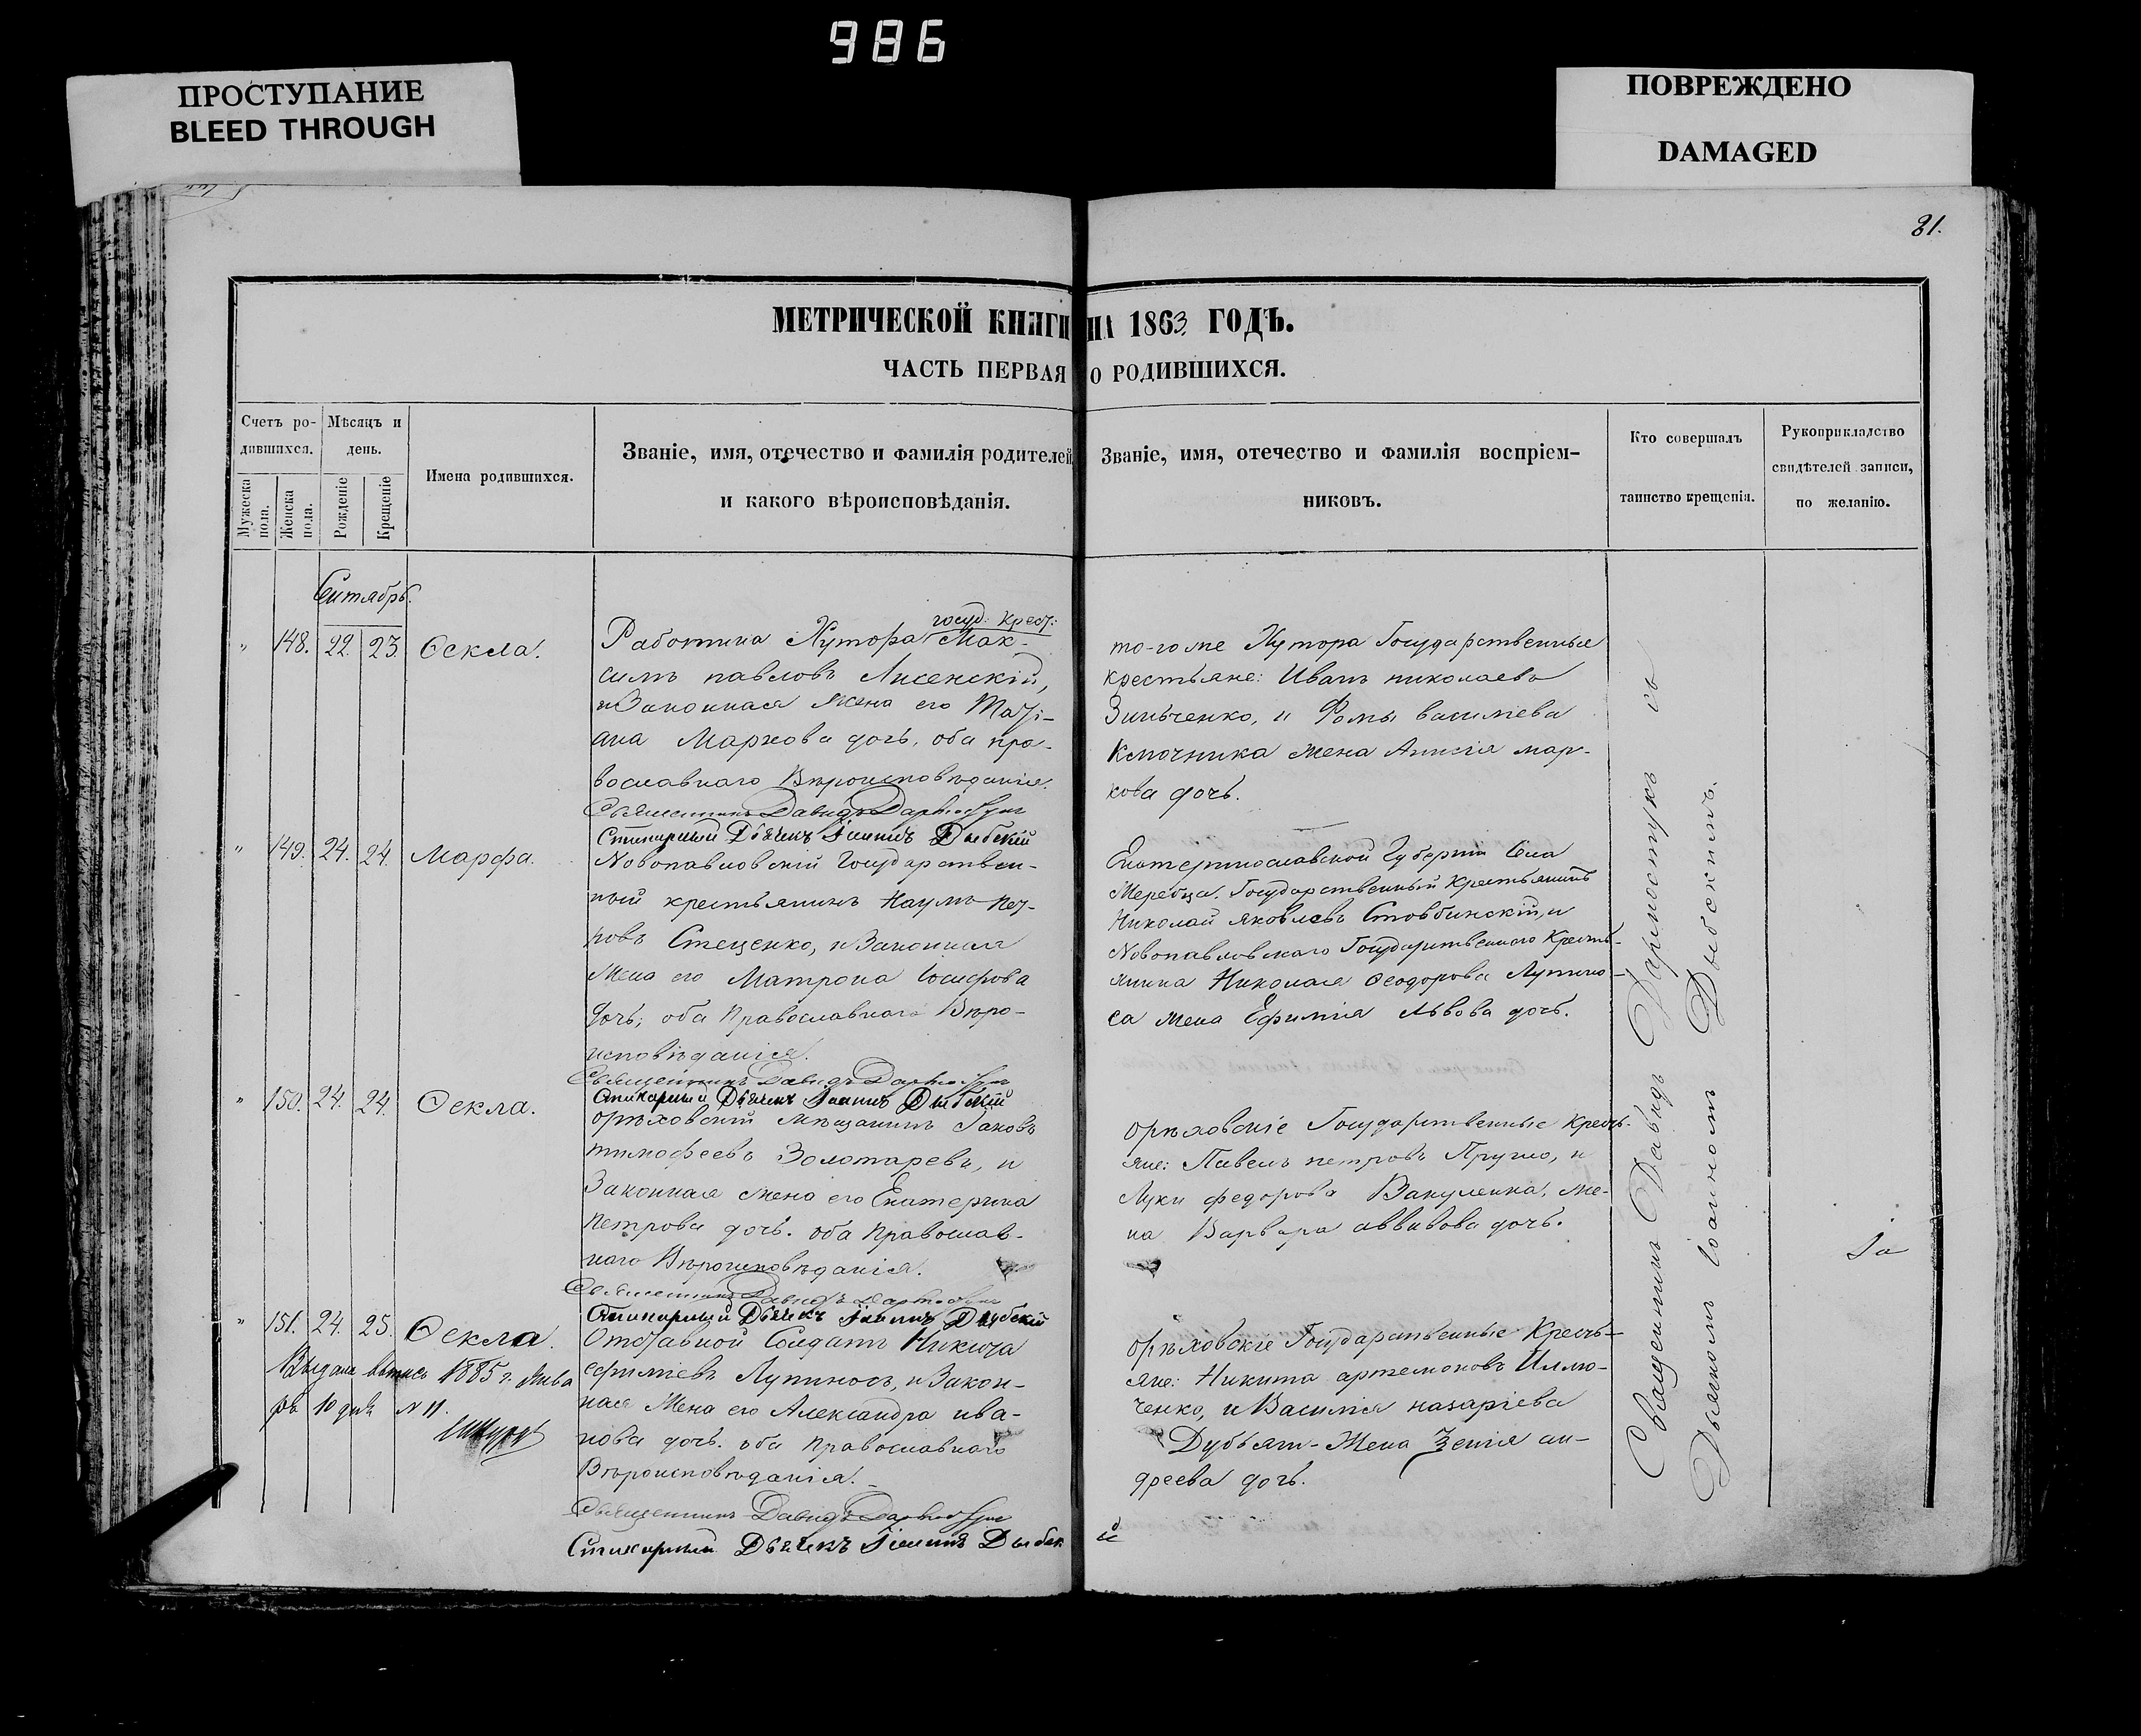 986
ПРОСТУПАНИЕ
BLEED THROUGH
ПОВРЕЖДЕНО
DAMAGED
81.
МЕТРИЧЕСКОЙ КНИГИ НА 1863 ГОДЪ.
ЧАСТЬ ПЕРВАЯ О РОДИВШИХСЯ.
Счетъ ро-
дившихся.
Мужеска
пола.
Женска
пола.
Мѣсяцъ и
день.
Рожденіе
Крещеніе
Имена родившихся.
Званіе, имя, отечество и фамилія родителей
и какого вѣроисповѣданія.
Званіе, имя, отечество и фамилія воспріем-
никовъ.
Кто совершалъ
таинство крещенія.
Рукоприкладство
свидѣтелей записи,
по желанію.
Сентябрь.
" 148. 22. 23. Ѳекла.
госуд: крест:
Работина Хутора Мак-
симъ павловъ Лисенскій,
и Законная Жена его Таті-
ана Маркова дочь, оба пра-
вославнаго Вѣроисповѣданія.
Священникъ Давидъ
Стихарный Дьячекъ Іоаннъ Дыбскій
того-же Хутора Государственные
крестьяне: Иванъ николаевъ
Зинченко, и Фомы василіева
Ключника жена Анисія мар-
кова дочь.
" 149. 24. 24. Марфа.
Новопавловскій Государствен-
ный крестьянинъ Наумъ пет-
ровъ Стеценко, и Законная
Жена его Матрона Іосифова
дочь, оба Православнаго Вѣро-
исповѣданія.
Священникъ Давидъ
Стихарный Дьячекъ Іоаннъ Дыбскій
Екатеринославской Губерніи Села
Жеребца. Государственный Крестьянинъ
Николай яковлевъ Стовбинскій, и
Новопавловскаго Государственного Кресть-
янина Николая Ѳеодорова Лупино-
са жена Ефимія Львова дочь.
" 150. 24. 24. Ѳекла.
орѣховскій мѣщанинъ Іаковъ
тимофеевъ Золотаревъ, и
Законная жена его Екатерина
Петрова дочь. оба Православ-
наго Вѣроисповѣданія.
Священникъ Давидъ
Стихарный Дьячекъ Іоаннъ Дыбскій
орѣховскіе Государственные Кресть-
яне: Павелъ петровъ Пругло, и
Луки федорова Вакуленка, же-
на Варвара аввивова дочь.
" 151. 24. 25. Ѳекла.
Выдана выпись 1885 г. Янва
ря 10 дня N 11.
Отставной Солдатъ Никита
ефиміевъ Лупиносъ, и Закон-
ная Жена его Александра ива-
нова дочь. оба Православнаго
Вѣроисповѣданія.
Священникъ Давидъ
Стихарный Дьячекъ Іоаннъ Дыбскій
орѣховскіе Государственные Кресть-
яне: Никита артемоновъ Иллю-
ченко, и Василія назаріева
Дубьяги-Жена Зенія ан-
дреева дочь.
Священникъ Давидъ съ
Дьячкомъ Іоанномъ Дыбскимъ.